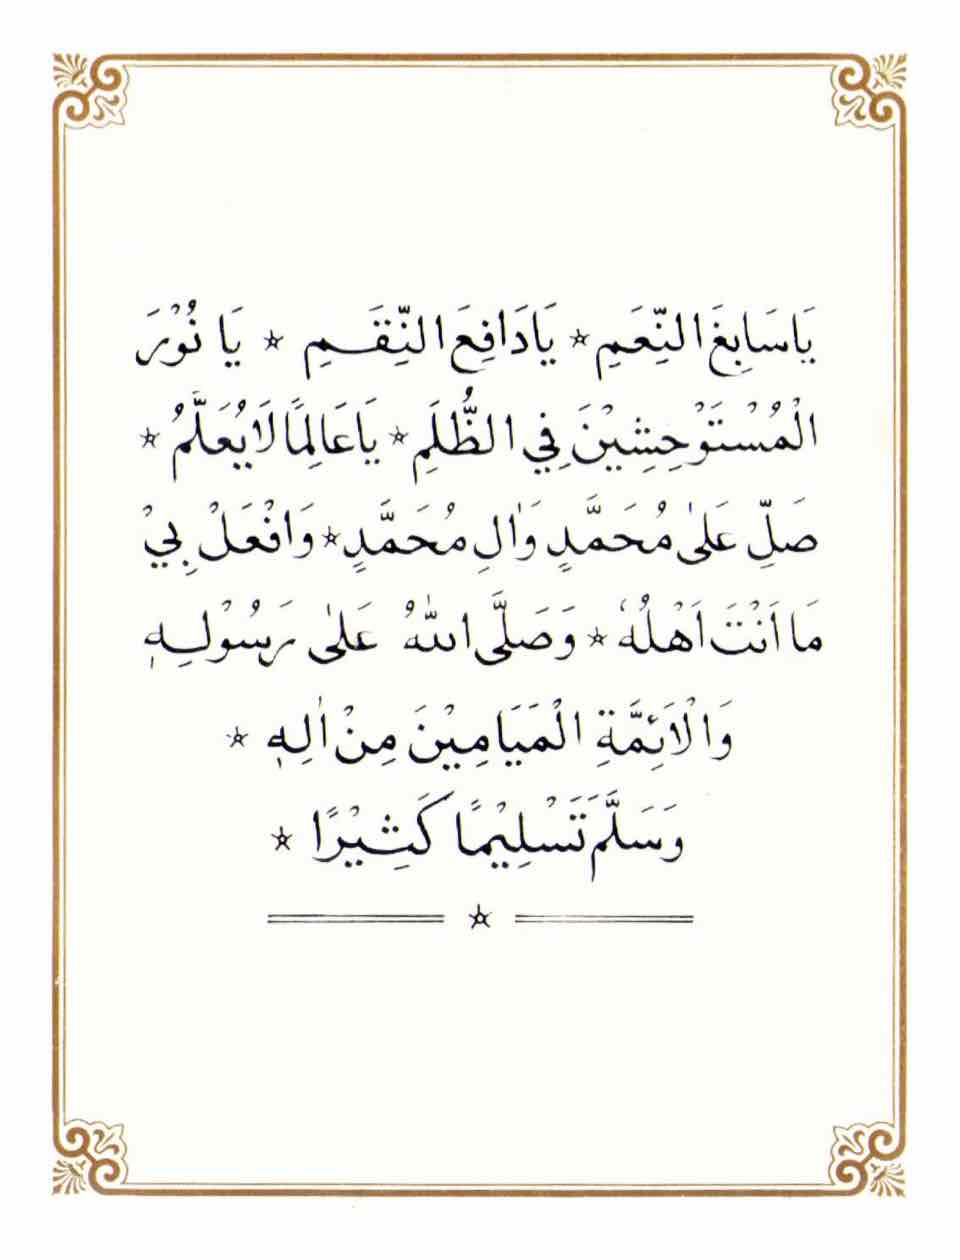 يَا سَابِغَ النِّعَمِ * يَا دَافِعَ النِّقَمِ * يَا نُوْرَ
الْمُسْتَوْحِشِيْنَ فِي الظُّلَمِ * يَا عَالِمًا لَا يُعَلَّمُ *
صَلِّ عَلٰى مُحَمَّدٍ وَاٰلِ مُحَمَّدٍ * وَافْعَلْ بِيْ
مَا اَنْتَ اَهْلُهٗ * وَصَلَّى اللّٰهُ عَلٰى رَسُوْلِهٖ
وَالْاَئِمَّةِ الْمَيَامِيْنَ مِنْ اٰلِهٖ *
وَسَلَّمَ تَسْلِيْمًا كَثِيْرًا *